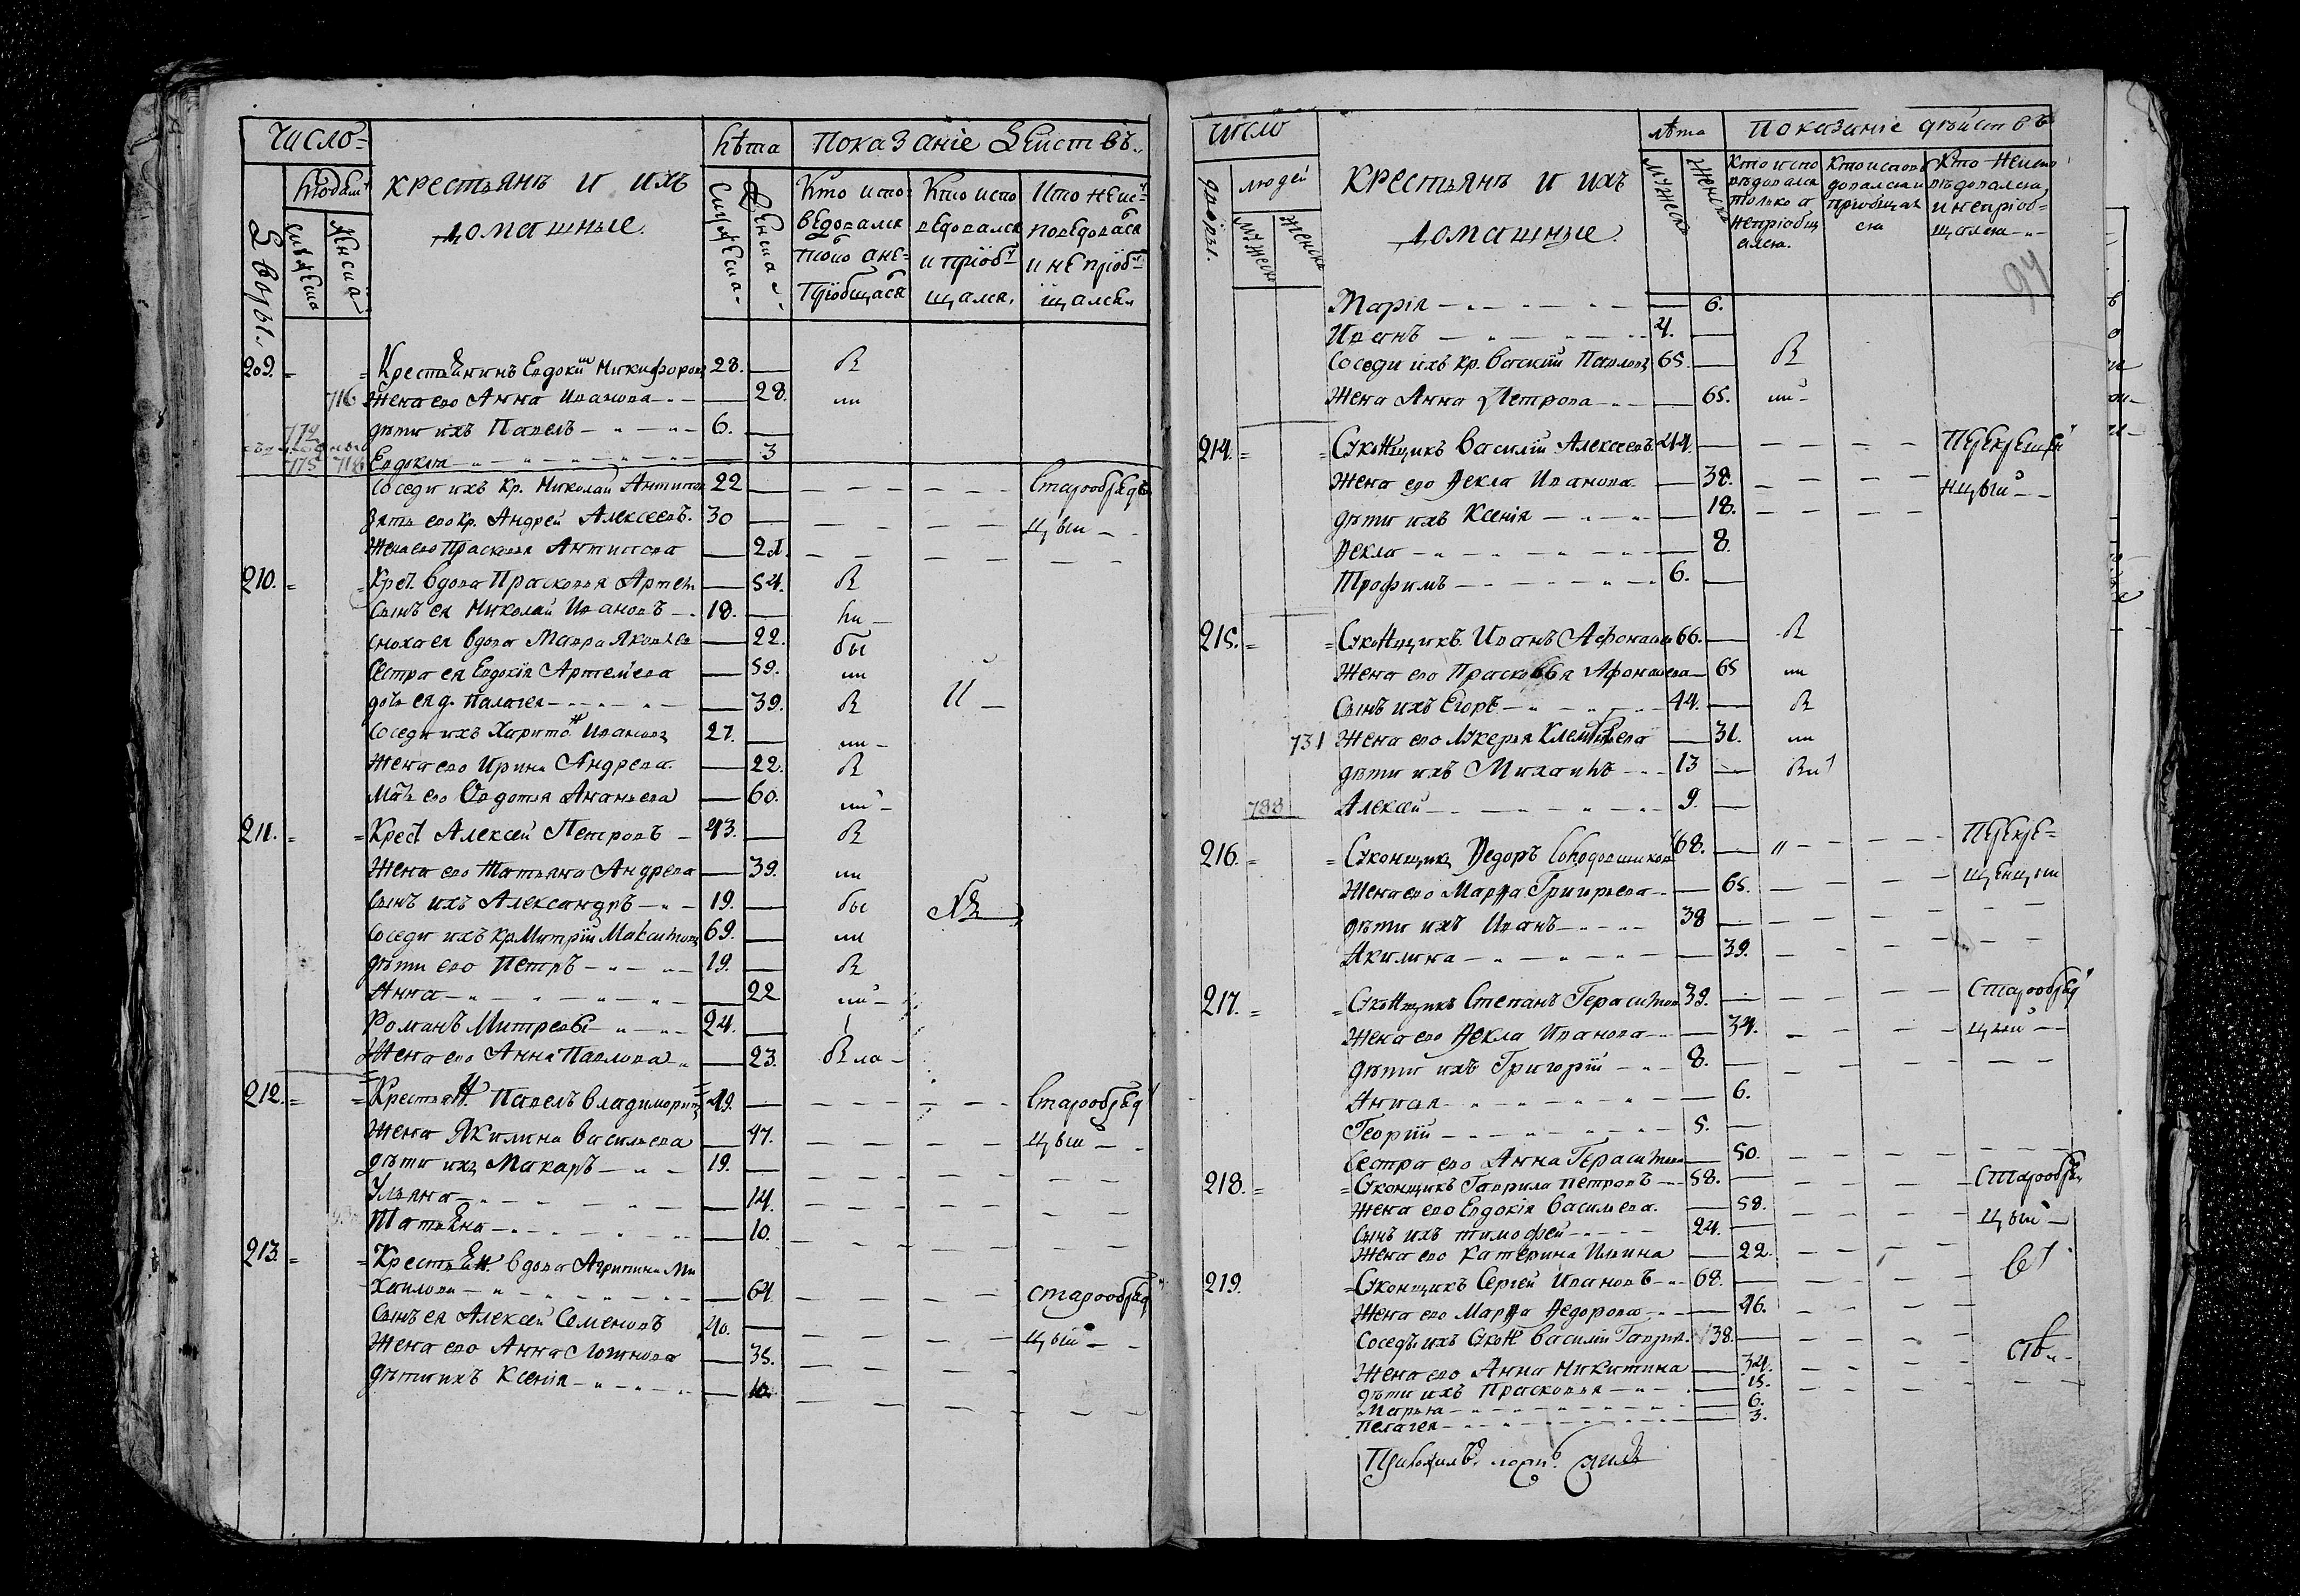 число
людей
Дворы
крестьянъ и ихъ
домашные.
лѣта
Показаніе Дейст въ
Кто испо-
ведовался
токо а не-
пріобщася
Кто испо
ведовался
и пріоб-
щался.
Кто не ис-
поведовася
и не пріоб-
щался
209. Крестьянинъ Евдоким Никифоровъ 28.
716 Жена его Анна Иванова 28.
дѣти ихъ Павелъ 6.
Евдокия 3
Соседи ихъ кр. Николай Антипов 22 Старообряд
Зять его кр. Андрей Алексеевъ. 30 цыи
Жена его Прасковья Антипова 21.
210. Крес. вдова Прасковья Артем 54. В
Сынъ ея Николай Ивановъ 18. ни
сноха ея вдова Мавра Яковлева 22. бы
Сестра ея Евдокія Артемьева 59. ии
дочь ея д. Палагея 39. В
Соседи ихъ Харитон Ивановъ 27. ии
Жена его Ирина Андрева. 22. В
Мать его Овдотья Ананьева 60. ии
211. Крест Алексей Петровъ 43. В
Жена его Татьяна Андрева 39. ии
Сынъ ихъ Александръ 19. бы
Соседи ихъ кр. Митрій Максимовъ 69. ии
дѣти его Петръ 19. В
Анна 22 ии
Романъ Митревъ 24.
Жена его Анна Павлова 23. В ла
212. Крестьян. Павелъ Владимеровъ 49. Старообряд
Жена Якилина Васильева 47. цыи
дѣти ихъ Макаръ 19.
Ульяна 14.
Татьяна 10.
213. Крестьян. вдова Агрипина Ми
хаилова 64 старообряд
Сынъ ея Алексей Семеновъ 40. цыи
Жена его Анна Логинова 35.
дѣти ихъ Ксенія 10.
число
людей
дворы.
мужеск
женска
крестьянъ и ихъ
домашные.
лѣта
мужеск
женска
Показаніе дѣйствъ
Кто испо
вѣдовался
только а
непріобщ
ался.
Кто исповѣ
довался и
пріобщал
ся
Кто неиспо
вѣдовался,
и непріоб-
щался
94
Марія 6.
Иванъ 4.
Соседи ихъ кр. Василій Павловъ 65. В
Жена Анна Петрова 65. ии
214. Скопщикъ Василій Алексеевъ. 44. Перекреще
Жена его Ѳекла Иванова 38. нцыи
дѣти ихъ Ксенія 18.
Ѳекла 8.
Трофимъ 6.
215. Скопщикъ Иванъ Афонасье 66. В
Жена его Прасковья Афонасева 65 ии
Сынъ ихъ Егоръ 44. В
731 Жена его Лукерья Клеменьева 31. ии
дѣти ихъ Михаилъ 13
788 Алексей 9.
216. Скопщикъ Ѳедоръ Солодовников 68. Перекре=
Жена его Марѳа Григорьева 65. щенцыи
дѣти ихъ Иванъ 38
Акилина 39.
217. Скопщикъ Степанъ Герасимов 39. Старообряд
Жена его Ѳекла Иванова 34. цыи
дѣти ихъ Григорій 8.
6.
Георгій 5.
Сестра его Анна Герасимова 50.
218. Скопщикъ Гаврила Петровъ 58. Старообря
Жена его Евдокія Васильева. 58. цыи
Сынъ ихъ Тимофей 24.
Жена его Катерина Ильина 22.
219. Скопщикъ Сергей Ивановъ 68.
Жена его Марѳа Ѳедорова 46.
Соседъ ихъ Скоп Василій Гаврил. 38.
Жена его Анна Никитина 34.
дѣти ихъ Прасковья 15.
Марья 6.
Пелагея 3.